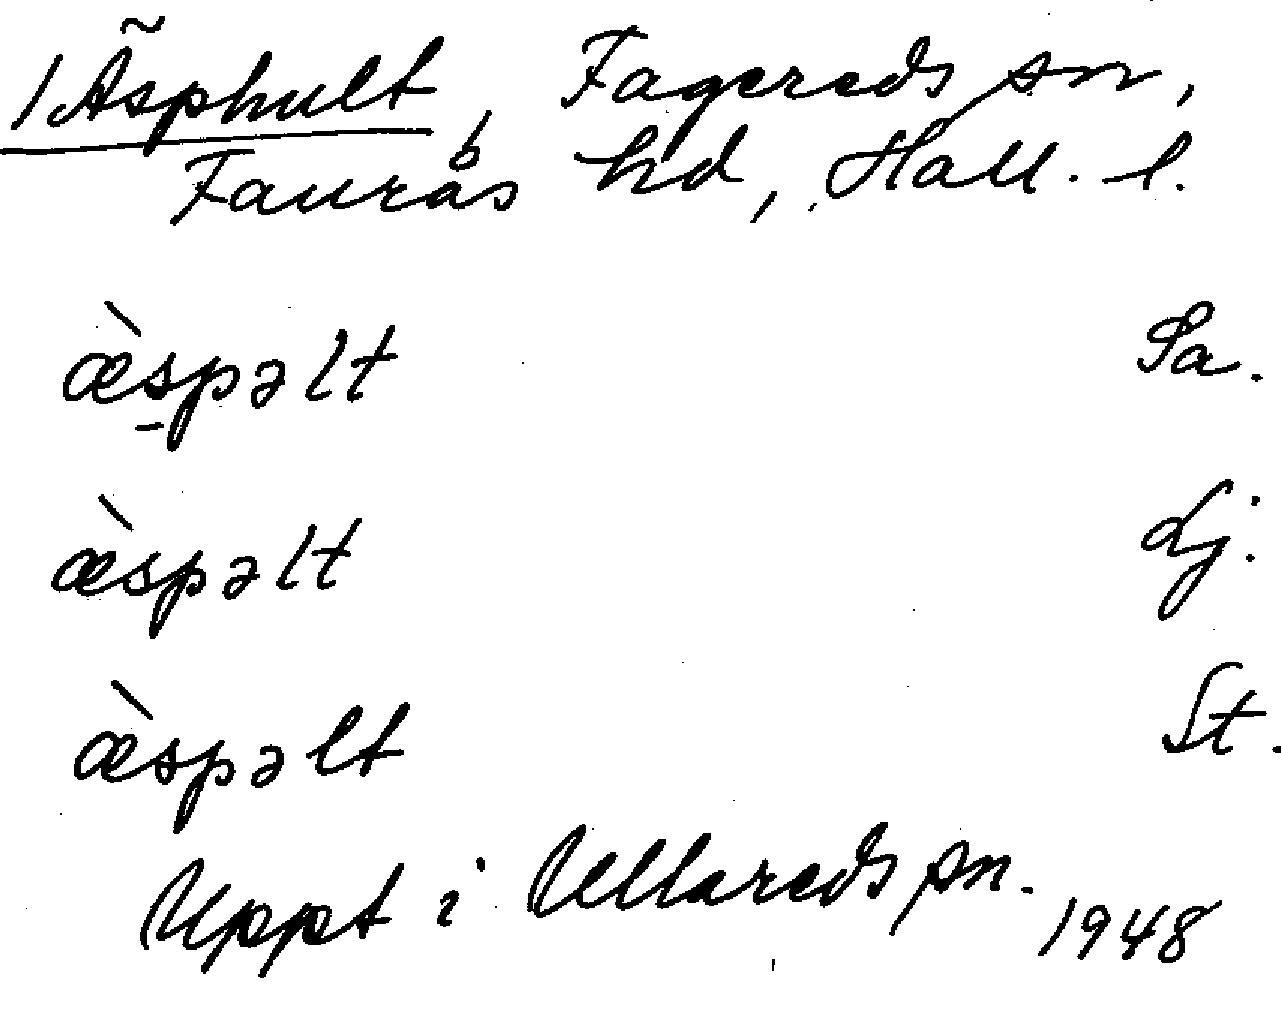 1 Äsphult, Fagereds sn,
Faurås hd, Hall. l.
æ̀spəlt Sa.
æ̀spəlt Lj.
æ̀spəlt St.
Uppt i Ullareds sn. 1948